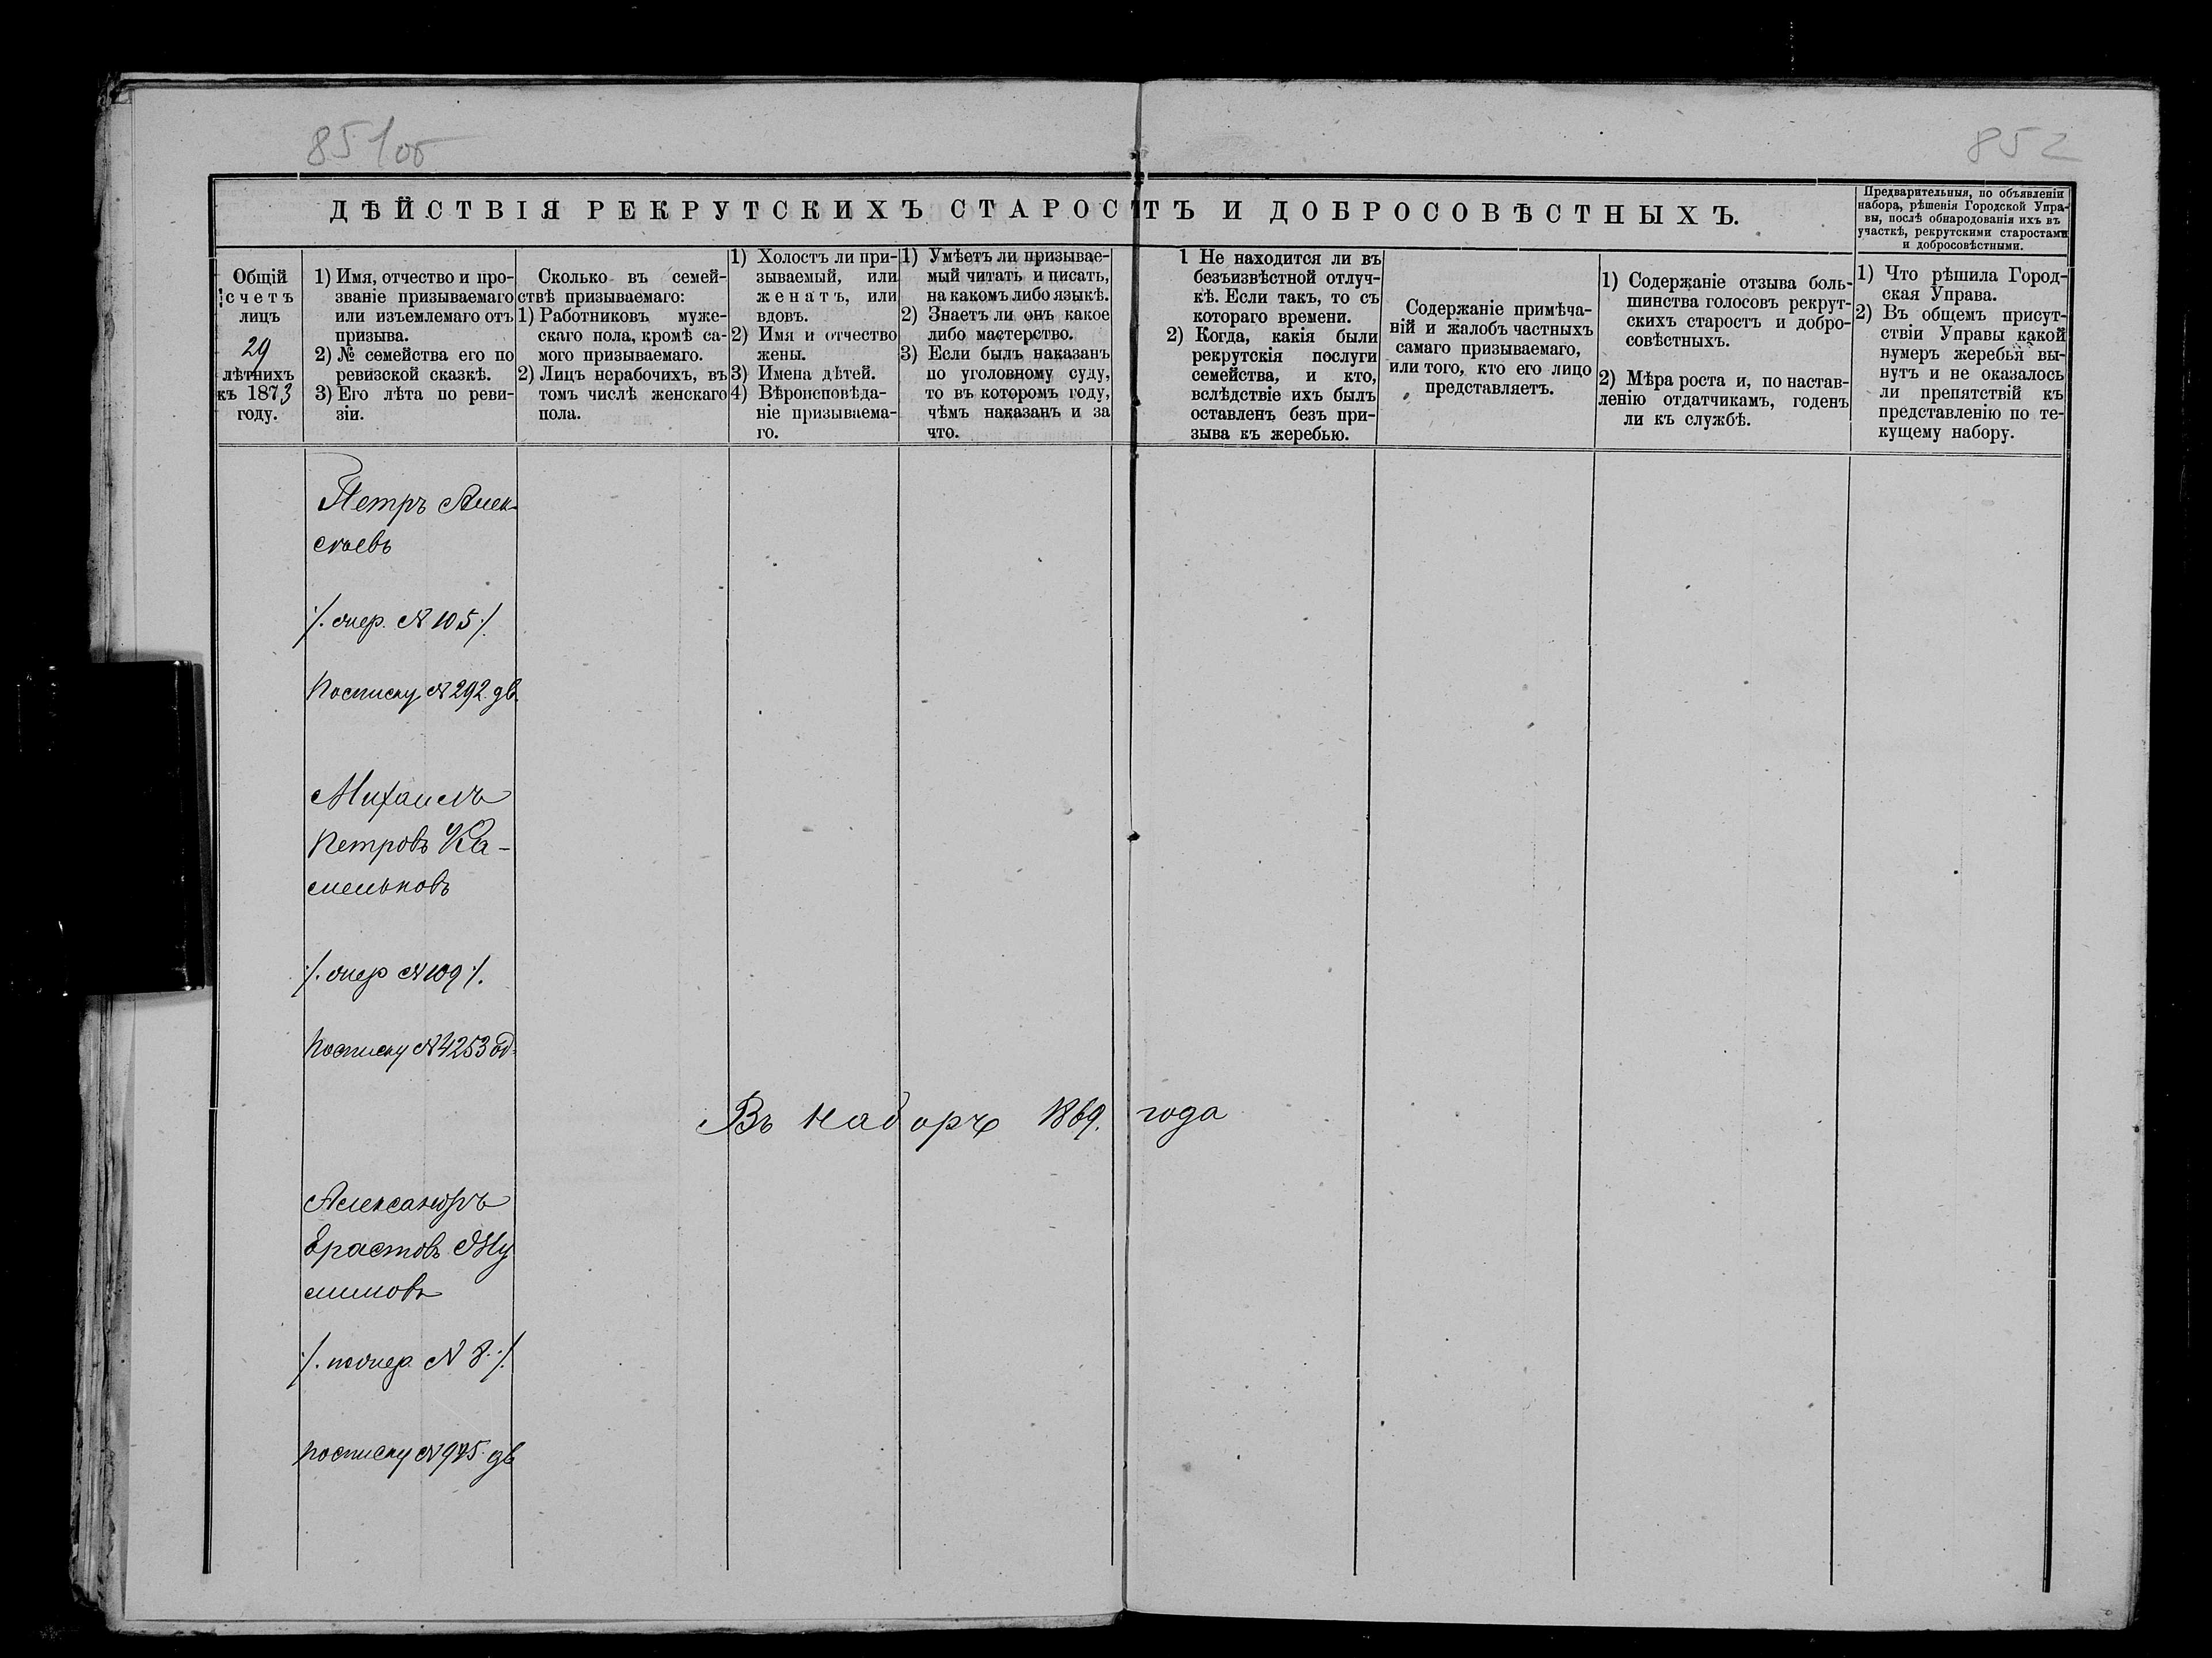 851об
852
ДѢЙСТВІЯ РЕКРУТСКИХЪ СТАРОСТЪ И ДОБРОСОВѢСТНЫХЪ.
Предварительныя, по объявленіи
набора, рѣшенія Городской Упра-
вы, послѣ обнародованія ихъ въ
участкѣ, рекрутскими старостами
и добросовѣстными.
Общій
счетъ
лицъ
29
лѣтнихъ
къ 1873
году.
1) Имя, отчество и про-
званіе призываемаго
или изъемлемаго отъ
призыва.
2) № семейства его по
ревизской сказкѣ.
3) Его лѣта по реви-
зіи.
Сколько въ семей-
ствѣ призываемаго:
1) Работниковъ муже-
скаго пола, кромѣ са-
мого призываемаго.
2) Лицъ нерабочихъ, въ
томъ числѣ женскаго
пола.
1) Холостъ ли при-
зываемый, или
женатъ, или
вдовъ.
2) Имя и отчество
жены.
3) Имена дѣтей.
4) Вѣроисповѣда-
ніе призываема-
го.
1) Умѣетъ ли призывае-
мый читать и писать,
на какомъ либо языкѣ.
2) Знаетъ ли онъ какое
либо мастерство.
3) Если былъ наказанъ
по уголовному суду,
то въ которомъ году,
чѣмъ наказанъ и за
что.
1 Не находится ли въ
безъизвѣстной отлуч-
кѣ. Если такъ, то съ
котораго времени.
2) Когда, какія были
рекрутскія послуги
семейства, и кто,
вслѣдствіе ихъ былъ
оставленъ безъ при-
зыва къ жеребью.
Содержаніе примѣча-
ній и жалобъ частныхъ
самаго призываемаго,
или того, кто его лицо
представляетъ.
1) Содержаніе отзыва боль-
шинства голосовъ рекрут-
скихъ старостъ и добро-
совѣстныхъ.
2) Мѣра роста и, по настав-
ленію отдатчикамъ, годенъ
ли къ службѣ.
1) Что рѣшила Город-
ская Управа.
2) Въ общемъ присут-
ствіи Управы какой
нумеръ жеребья вы-
нутъ и не оказалось
ли препятствій къ
представленію по те-
кущему набору.
Петръ Алек-
сѣевъ
/. жер. № 105 ./
По списку № 292 дв.
Михаилъ
Петровъ Ка-
мельковъ
/. жер № 109 ./
По списку № 4253 од-
Въ наборѣ 1869. года
Александръ
Ерастовъ
/. № 8. ./
по списку № 975 дв